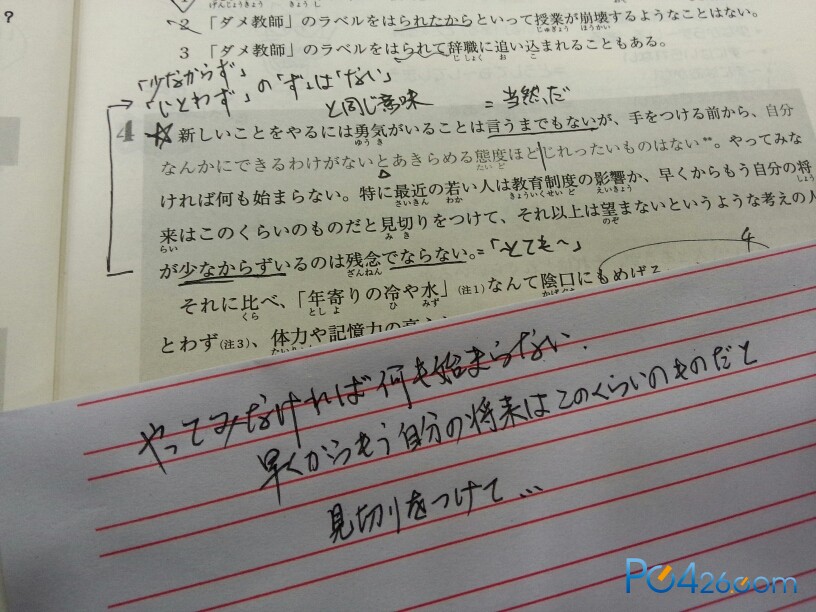 げんじょうきょう きょうし
?
2 「ダメ教師」のラベルをはられたからといって授業が崩壊するようなことはない。
じゅぎょう ほうかい
3 「ダメ教師」のラベルをはられて辞職に追い込まれることもある。
じしょく お こ
「少なからず」
「とわず」の「ず」は「ない」
と同じ意味 = 当然だ
4 ☆ 新しいことをやるには勇気がいることは言うまでもないが、手をつける前から、自分
ゆうき
なんかにできるわけがないとあきらめる態度ほどじれったいものはない**。やってみな
たいど
ければ何も始まらない。特に最近の若い人は教育制度の影響か、早くからもう自分の将
さいきん わか きょういくせいど えいきょう しょう
来はこのくらいのものだと見切りをつけて、それ以上は望まないというような考えの人
らい み き のぞ
が少なからずいるのは残念でならない。=「とても〜」
ざんねん
4
それに比べ、「年寄りの冷や水」(注1)なんて陰口にもめげ
くら としよ ひ みず かげぐち
とわず(注3)、体力や記憶力の
やってみなければ何も始まらない.
早くからもう自分の将来はこのくらいのものだと
見切りをつけて...
PC426.com